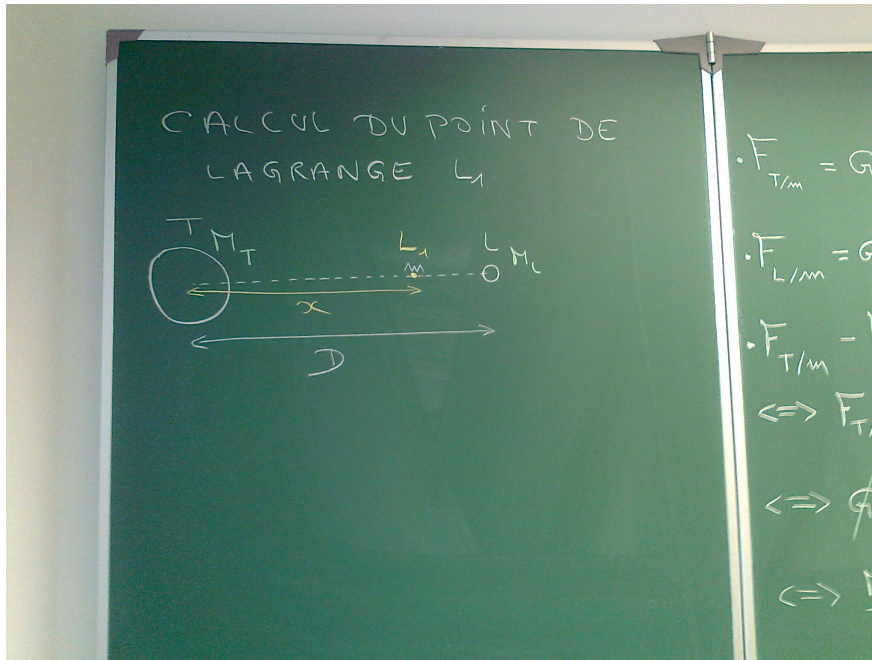 CALCUL DU POINT DE
LAGRANGE L₁
T M_T
L₁
m
L M_L
x
D
. F_T/m = G
. F_L/m = G
. F_T/m -
<=> F_T/
<=> G
<=>